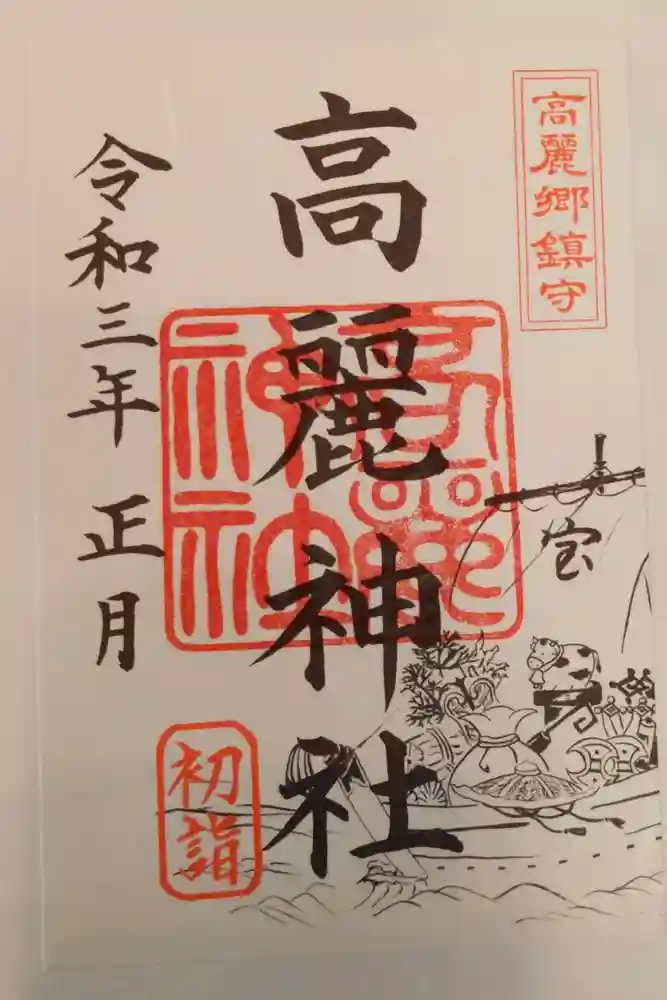 高麗郷鎮守
高麗神社
宝
令和三年 正月
初詣
高麗神社